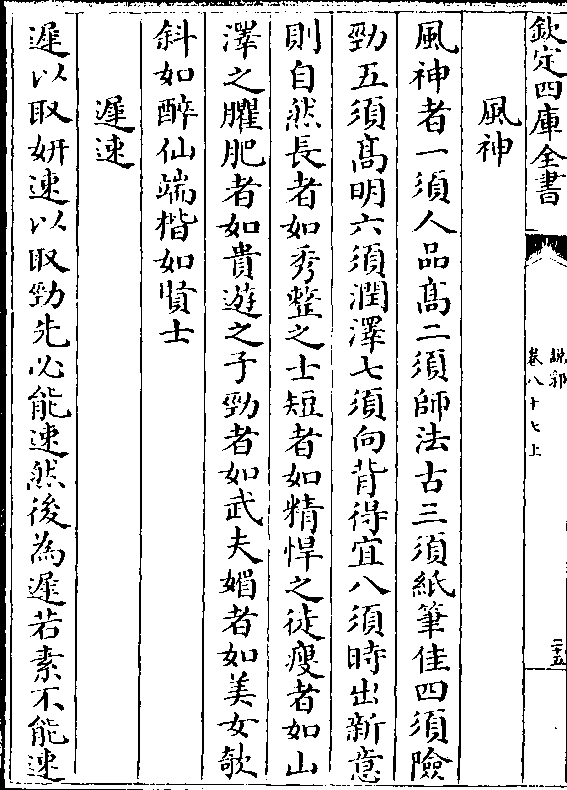 欽定四庫全書
說郛
卷八十七上
二十五
風神
風神者一須人品髙二須師法古三須紙筆佳四須險
勁五須髙明六須潤澤七須向背得宜八須時出新意
則自然長者如秀整之士短者如精悍之徒瘦者如山
澤之臞肥者如貴遊之子勁者如武夫媚者如美女欹
斜如醉仙端楷如賢士
遲速
遲以取妍速以取勁先必能速然後為遲若素不能速